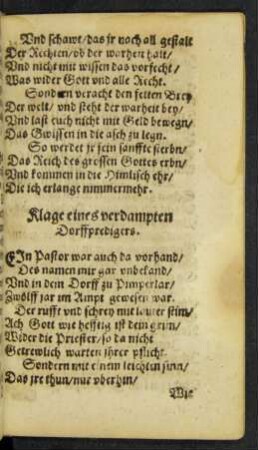 Vnd schawt/das jr noch all gestalt
Der Rechten/ob der warheit halt/
Vnd nicht mit wissen das vorfecht/
Was wider Gott vnd alle Recht.
Sondern veracht den fetten Brey
Der welt/ vnd steht der warheit bey/
Vnd last euch nicht mit Geld bewegn/
Das Gwissen in die asch zu legn.
So werdet jr fein sanffte sterbn/
Das Reich des grossen Gottes erbn/
Vnd kommen in die Himlisch ehr/
Die ich erlange nimmermehr.
Klage eines verdampten
Dorffpredigers.
EIn Pastor war auch da vorhand/
Des namen mir gar vnbekand/
Vnd in dem Dorff zu Pimperlar/
Zwölff jar im Ampt gewesen war.
Der rufft vnd schrey mit lauter stim/
Ach Gott wie hefftig ist dein grim/
Wider die Priester/so da nicht
Getrewlich warten jhrer pflicht.
Sondern mit einem leichten sinn/
Das jre thun/nur vberhin/
Wie